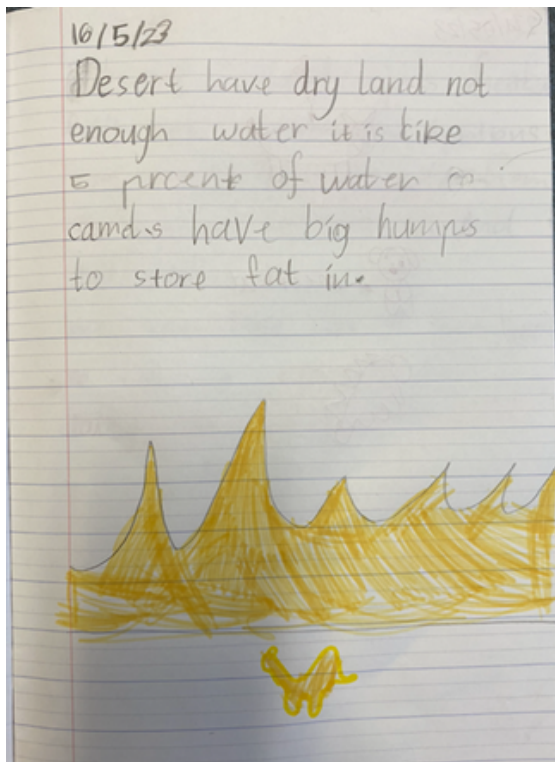 16/5/23
Desert have dry land not
enough water it is like
5 prcent of water
camels have big humps
to store fat in.